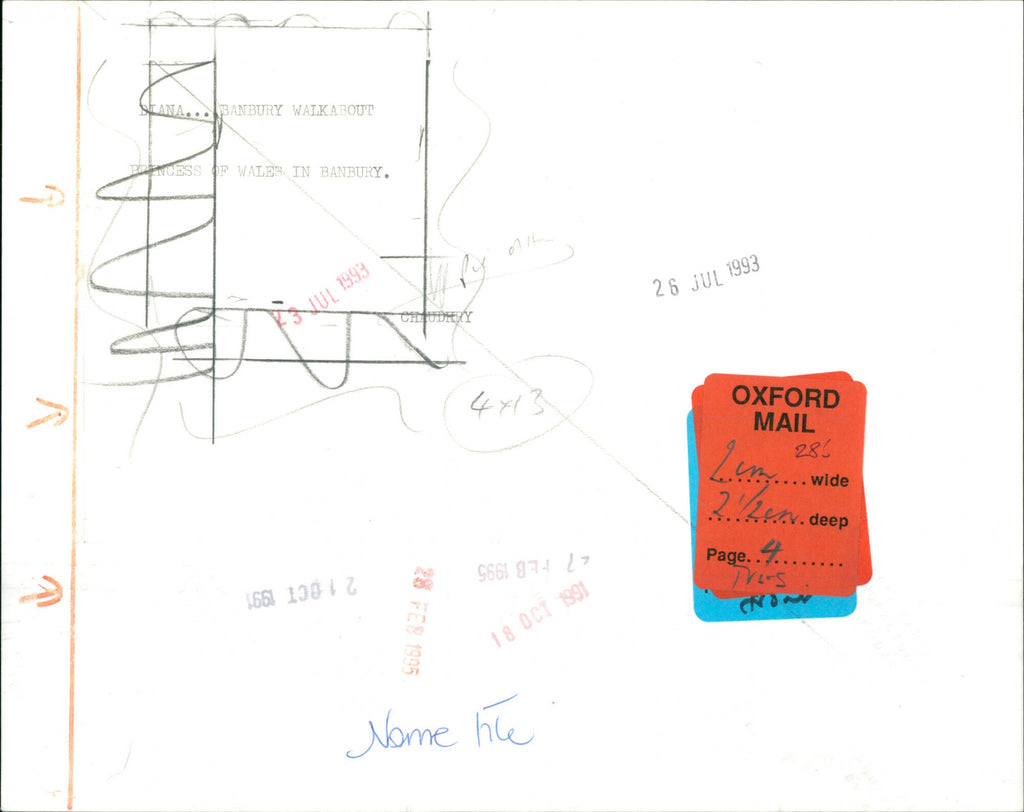 DIANA... BANBURY WALKABOUT
PRINCESS OF WALES IN BANBURY.
23 JUL 1993
CHAUDHRY
26 JUL 1993
4x13
OXFORD
MAIL
286
2 cm wide
2 1/2 cm deep
Page 4
21 OCT 1991
28 FEB 1995
27 FEB 1995
18 OCT 1991
Name file